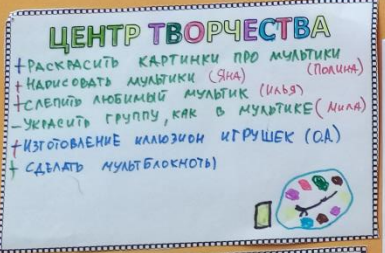 ЦЕНТР ТВОРЧЕСТВА
+ РАСКРАСИТЬ КАРТИНКИ ПРО МУЛЬТИКИ (ПОЛИНА)
+ НАРИСОВАТЬ МУЛЬТИКИ (ЯНА)
+ СЛЕПИТЬ ЛЮБИМЫЙ МУЛЬТИК (ИЛЬЯ)
- УКРАСИТЬ ГРУППУ, КАК В МУЛЬТИКЕ (МИЛА)
+ ИЗГОТОВЛЕНИЕ ИЛЛЮЗИОН ИГРУШЕК (О.А)
+ СДЕЛАТЬ МУЛЬТБЛОКНОТЫ